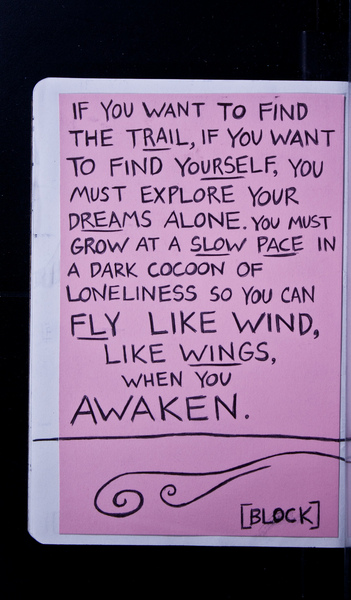 IF YOU WANT TO FIND
THE TRAIL, IF YOU WANT
TO FIND YOURSELF, YOU
MUST EXPLORE YOUR
DREAMS ALONE. YOU MUST
GROW AT A SLOW PACE IN
A DARK COCOON OF
LONELINESS SO YOU CAN
FLY LIKE WIND,
LIKE WINGS,
WHEN YOU
AWAKEN.
[BLOCK]